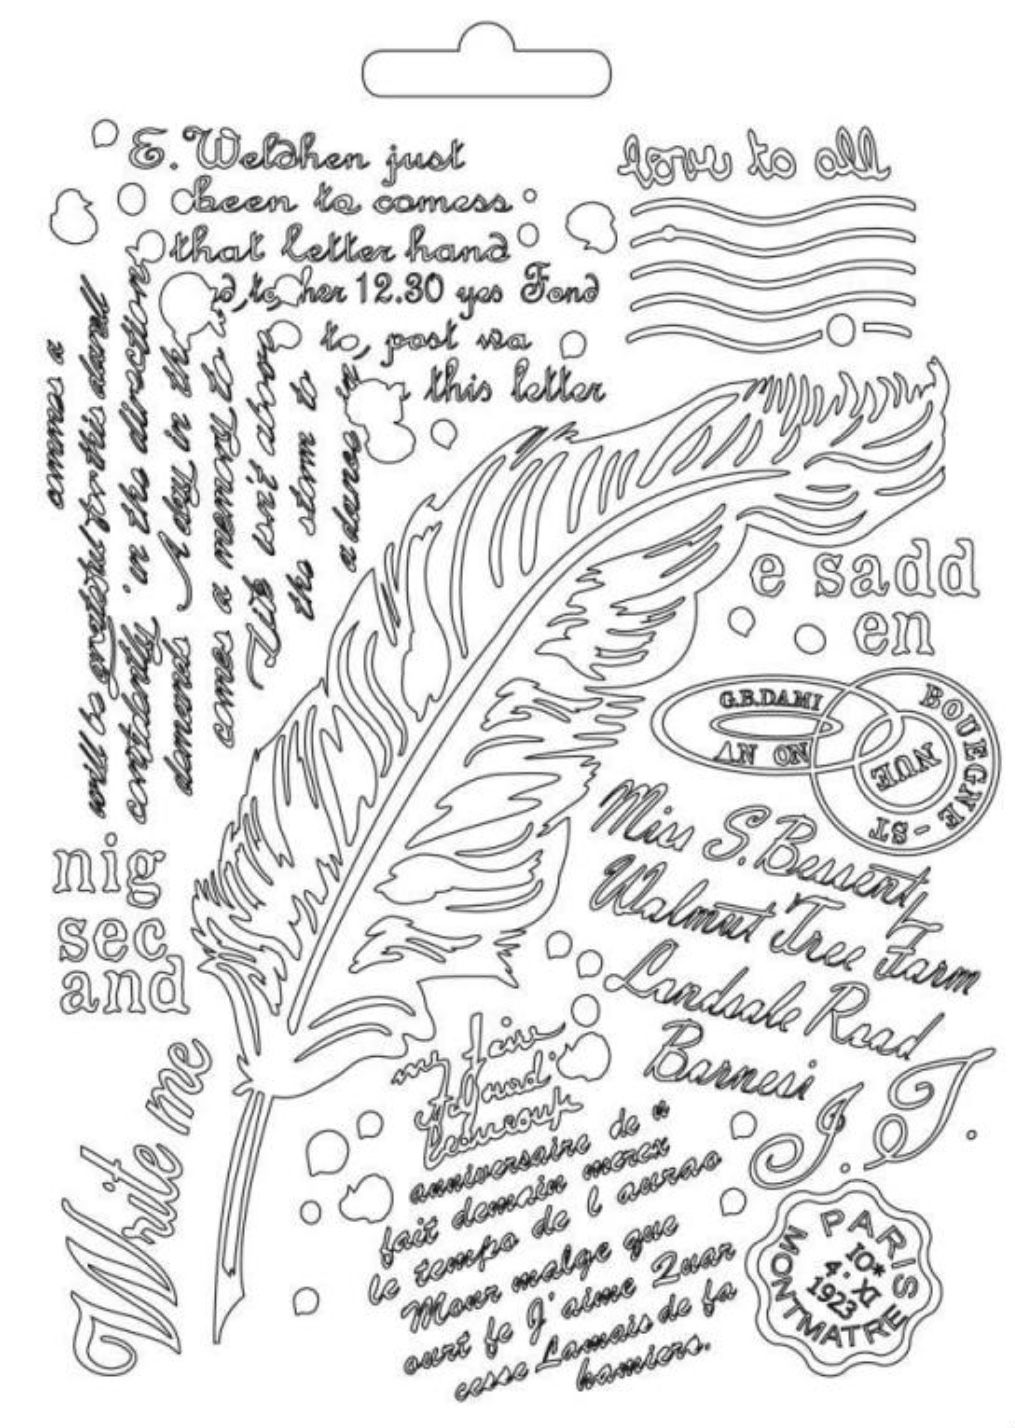 E. Weldhen just
been to comess
that letter hand
to her 12.30 yes Fond
to, post via
this letter
love to all
ommes a
will be grateful for this dandl
confidently 'in the direction
damards A day in the
comes a memory to
Life isn't above
the storm to
a dance in
e sadd
en
G.B.DAMI
AN ON
BOUEGNE-ST
NUE
Miss S. Bessent
Walmut Tree Farm
Landsale Road
Barnesi
J. T.
nig
sec
and
Write me
my faire
quad
beaucoup
anniversaire de a
fait demain merex
le tempo de l aurao
Mour malge que
ourt fe J'aime Quar
cesse Lamais de fa
hamiers.
PARIS
10*
4. XI
1923
MONTMATRE